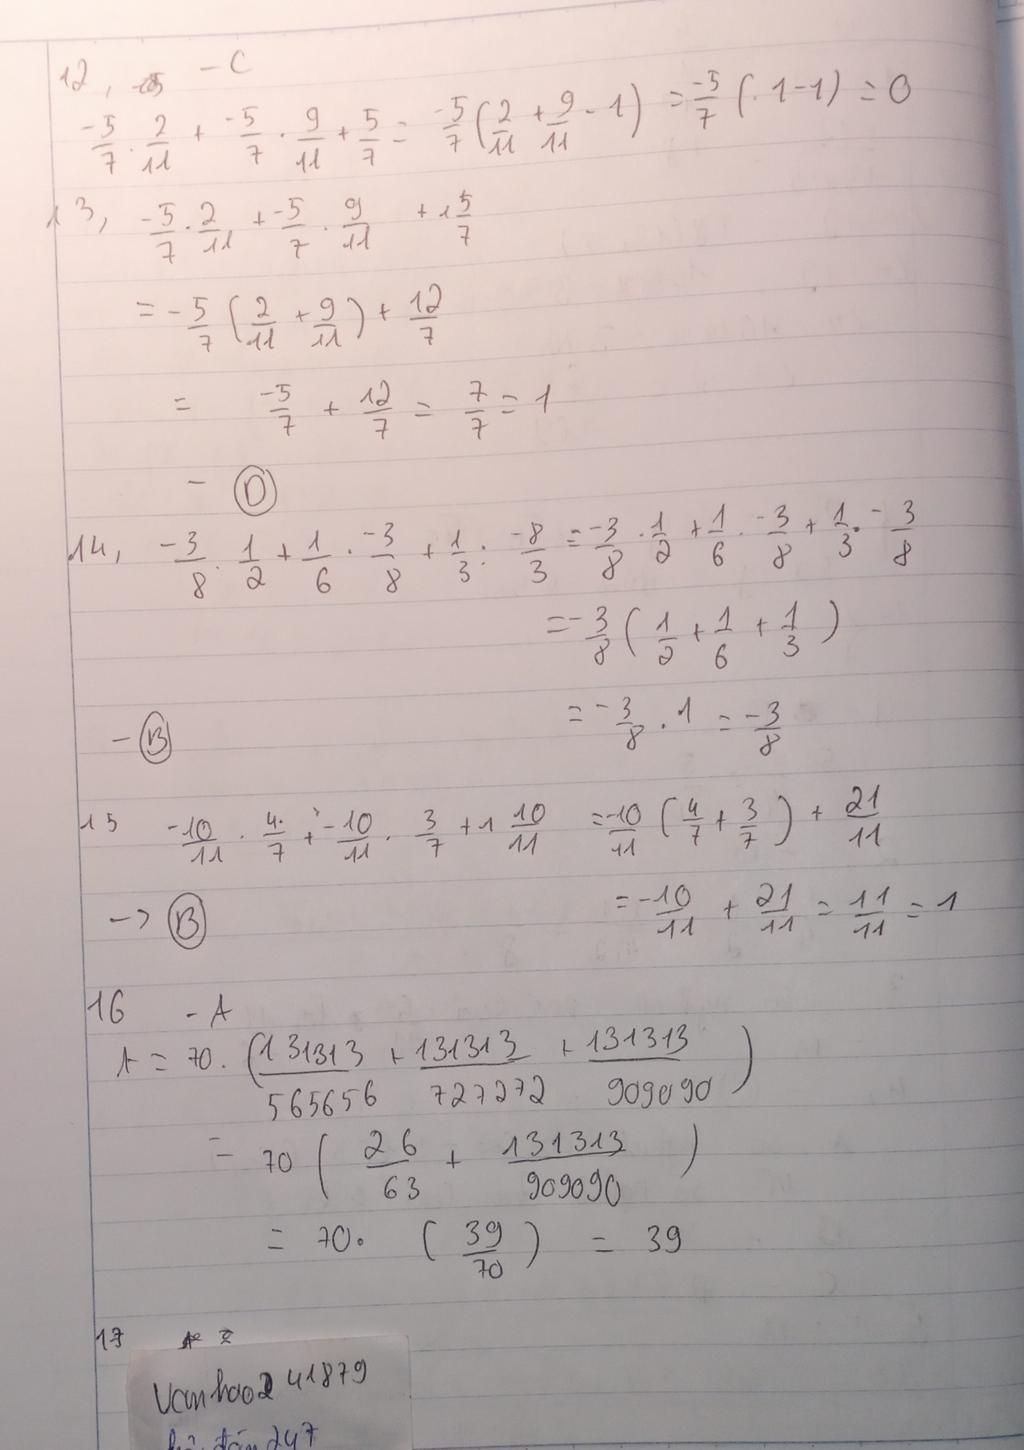 12, - C
-5/7 . 2/11 + -5/7 . 9/11 + 5/7 = -5/7 (2/11 + 9/11 - 1) = -5/7 (. 1-1) = 0
13, -5/7 . 2/11 + -5/7 . 9/11 + 1 5/7
= -5/7 (2/11 + 9/11) + 12/7
= -5/7 + 12/7 = 7/7 = 1
- D
14, -3/8 . 1/2 + 1/6 . -3/8 + 1/3 : -8/3 = -3/8 . 1/2 + 1/6 . -3/8 + 1/3 . -3/8
= -3/8 (1/2 + 1/6 + 1/3)
- B = -3/8 . 1 = -3/8
15 -10/11 . 4/7 + -10/11 . 3/7 + 1 10/11 = -10/11 (4/7 + 3/7) + 21/11
-> B = -10/11 + 21/11 = 11/11 = 1
16 - A
A = 70. (131313/565656 + 131313/727272 + 131313/909090)
= 70 (26/63 + 131313/909090)
= 70. (39/70) = 39
17
Vanhao2 41879
247